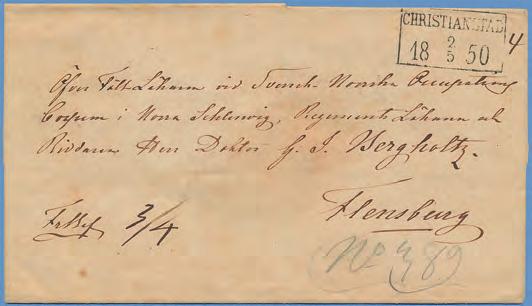 CHRISTIANSTAD
2
18 50
5
4
Öfver Fält Läkaren vid Svensk-Norska Occupations
Corpsen i Norra Schleswig, Regements Läkaren och
Riddaren Herr Doktor J. Bergholtz.
Flensburg
3/4
No 389